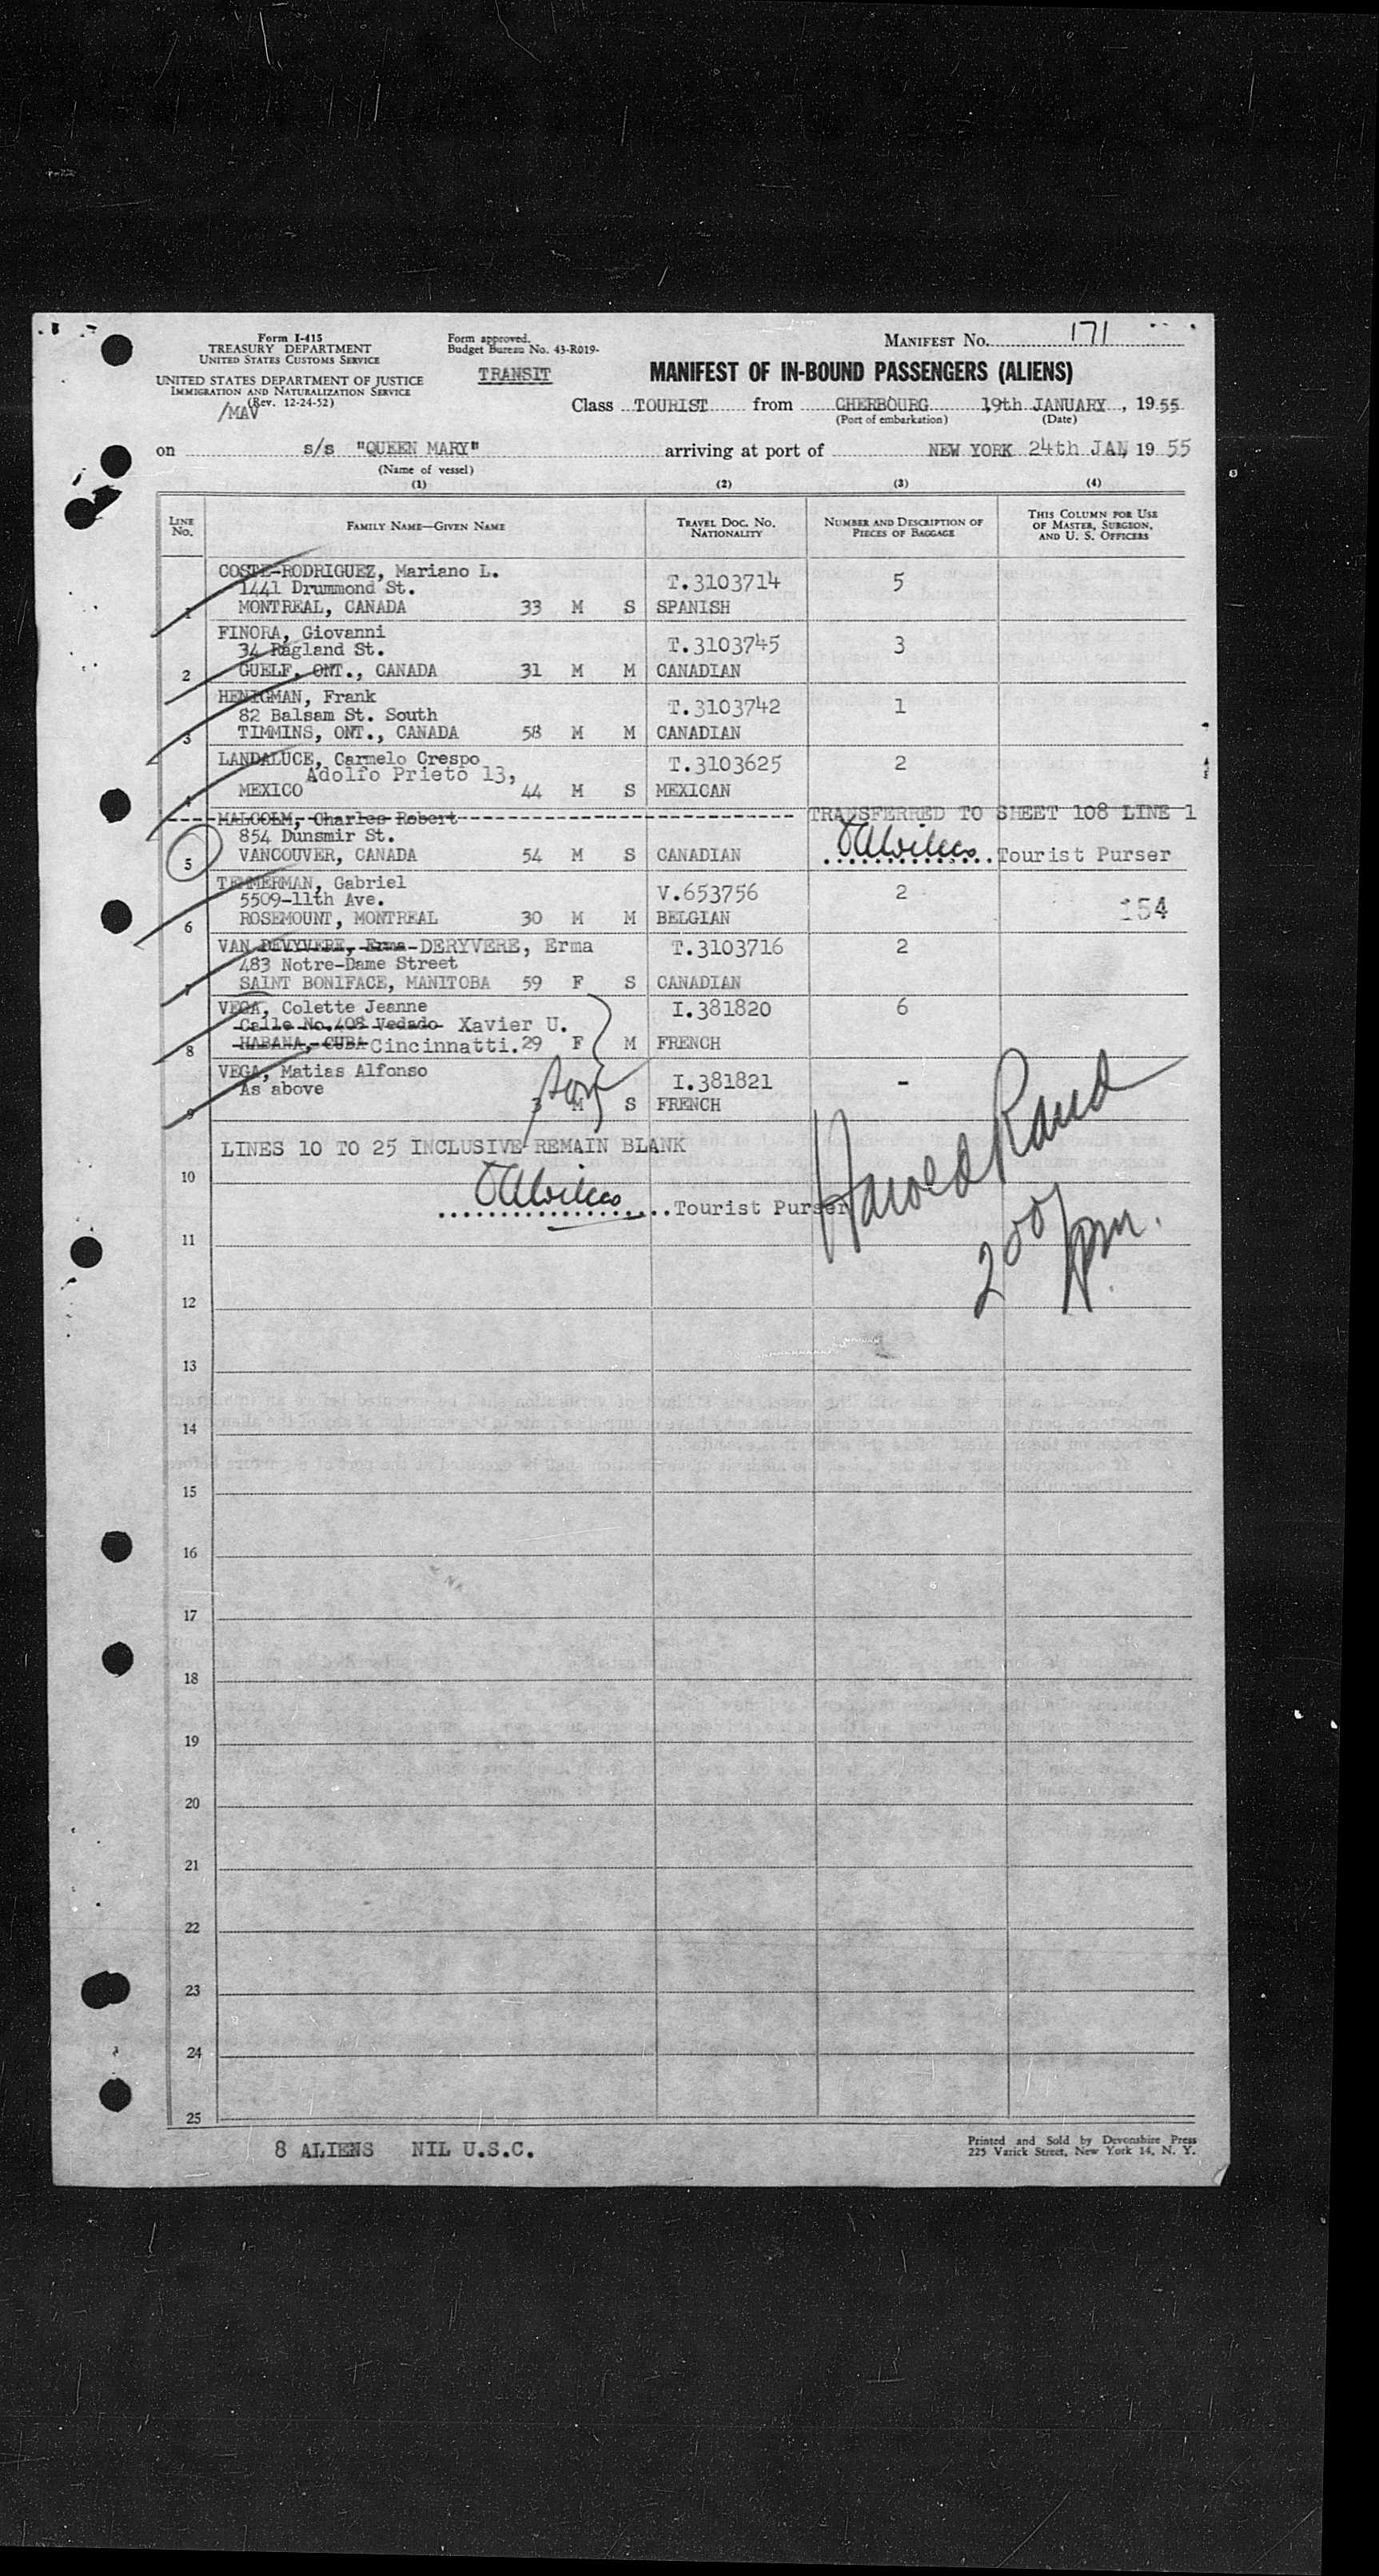 Form I-415
TREASURY DEPARTMENT
UNITED STATES CUSTOMS SERVICE
UNITED STATES DEPARTMENT OF JUSTICE
IMMIGRATION AND NATURALIZATION SERVICE
(Rev. 12-24-52)
/MAV
Form approved.
Budget Bureau No. 43-R019-
TRANSIT
MANIFEST No. 171
MANIFEST OF IN-BOUND PASSENGERS (ALIENS)
Class TOURIST from CHERBOURG 19th JANUARY, 1955
(Port of embarkation) (Date)
on s/s "QUEEN MARY" arriving at port of NEW YORK 24th JAN, 19 55
(Name of vessel)
(1) (2) (3) (4)
LINE No. FAMILY NAME—GIVEN NAME TRAVEL DOC. NO. NATIONALITY NUMBER AND DESCRIPTION OF PIECES OF BAGGAGE THIS COLUMN FOR USE OF MASTER, SURGEON, AND U. S. OFFICERS
COSTE-RODRIGUEZ, Mariano L. T.3103714 5
1441 Drummond St.
1 MONTREAL, CANADA 33 M S SPANISH
FINORA, Giovanni T.3103745 3
34 Ragland St.
2 GUELF, ONT., CANADA 31 M M CANADIAN
HENIGMAN, Frank T.3103742 1
82 Balsam St. South
3 TIMMINS, ONT., CANADA 58 M M CANADIAN
LANDALUCE, Carmelo Crespo T.3103625 2
Adolfo Prieto 13,
4 MEXICO 44 M S MEXICAN
MALCOLM, Charles Robert TRANSFERRED TO SHEET 108 LINE 1
854 Dunsmir St.
5 VANCOUVER, CANADA 54 M S CANADIAN Tourist Purser
TEMMERMAN, Gabriel V.653756 2
5509-11th Ave.
6 ROSEMOUNT, MONTREAL 30 M M BELGIAN 154
VAN DEVYVERE, Erma-DERYVERE, Erma T.3103716 2
483 Notre-Dame Street
7 SAINT BONIFACE, MANITOBA 59 F S CANADIAN
VEGA, Colette Jeanne I.381820 6
Calle No.408 Vedado Xavier U.
8 HABANA, CUBA Cincinnatti. 29 F M FRENCH
VEGA, Matias Alfonso I.381821 -
As above son
9 3 M S FRENCH
LINES 10 TO 25 INCLUSIVE REMAIN BLANK
10
Tourist Purser
Harold Rand
200 pm.
11
12
13
14
15
16
17
18
19
20
21
22
23
24
25
8 ALIENS NIL U.S.C.
Printed and Sold by Devonshire Press
225 Varick Street, New York 14, N. Y.